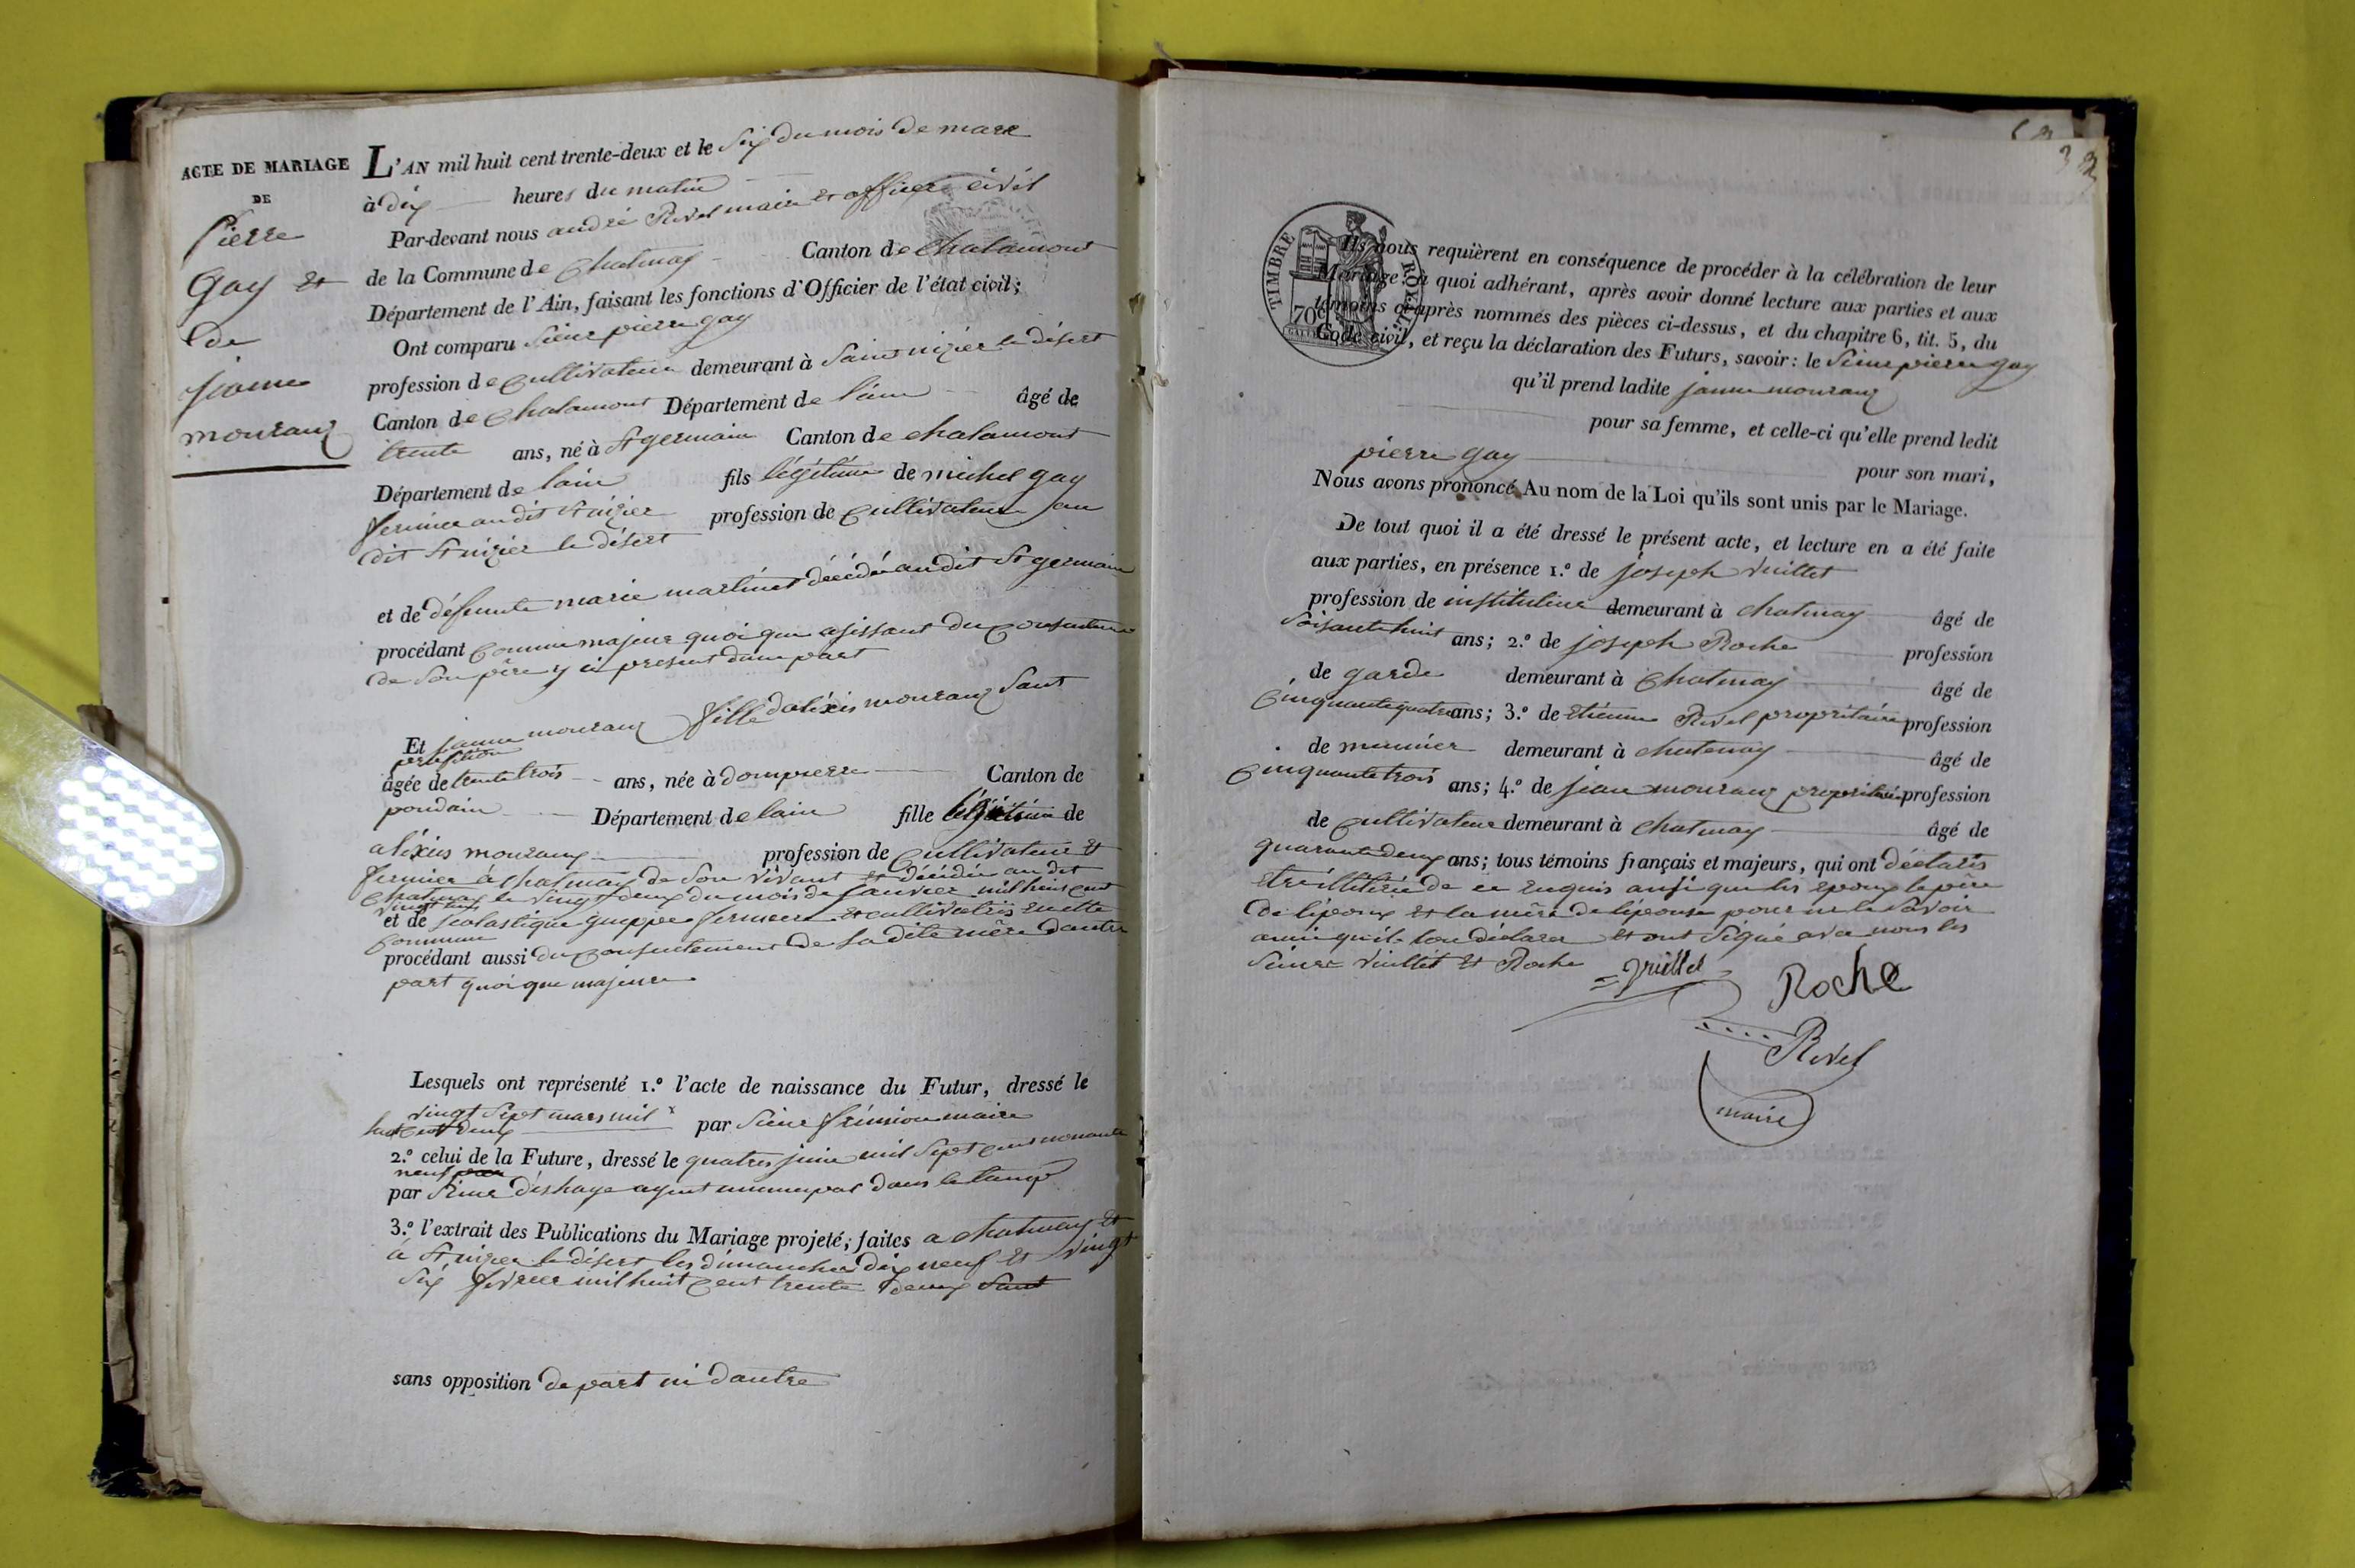 ACTE DE MARIAGE
DE
Pierre
Gay et
de
jeanne
mouraux
L'AN mil huit cent trente-deux et le Six du mois de mars
à dix heures du matin
Par-devant nous andré Rivel maire et officier civil
de la Commune de Chatenay Canton de Chalamont
Département de l'Ain, faisant les fonctions d'Officier de l'état civil;
Ont comparu Sieur pierre gay
profession de Cultivateur demeurant à Saint nizier le désert
Canton de Chalamont Département de lain âgé de
trente ans, né à St germain Canton de chalamont
Département de lain fils légitime de michel gay
fermier audit St nizier profession de Cultivateur au
dit St nizier le désert
et de défunte marie martinet décédée audit St germain
procédant Comme majeur quoique agissant du Consentement
de Son père y ci present dune part
Et jeanne mouraux fille daléxis mouraux Sant
profession
âgée de trente trois ans, née à dompierre Canton de
pondain Département de lain fille légitime de
aléxis mouraux profession de Cultivateur et
fermier à Chatenay de Son vivant et décédé au dit
Chatenay le vingt deux du mois de janvier mil huit cent
et de scolastique fermiere et cultivatris en cette
Commune
procédant aussi du Consentement de Sadite mère dautre
part quoique majeure
Lesquels ont représenté 1.º l'acte de naissance du Futur, dressé le
vingt Sept mars mil
huit cent deux par Sieur maire
2.º celui de la Future, dressé le quatres juin mil Sept cent nonante
neuf
par Sieur déshaye agent municipal dans le tamp
3.º l'extrait des Publications du Mariage projeté; faites a chatenay et
à St nizier le désert les dimanches dix neuf et vingt
Six fevrier mil huit Cent trente deux Sant
sans opposition de part ni dautre
32
TIMBRE ROYAL
70
Ils nous requièrent en conséquence de procéder à la célébration de leur
Mariage: à quoi adhérant, après avoir donné lecture aux parties et aux
témoins ci-après nommés des pièces ci-dessus, et du chapitre 6, tit. 5, du
Code civil, et reçu la déclaration des Futurs, savoir: le Sieur pierre gay
qu'il prend ladite jeanne mouraux
pour sa femme, et celle-ci qu'elle prend ledit
pierre gay pour son mari,
Nous avons prononcé Au nom de la Loi qu'ils sont unis par le Mariage.
De tout quoi il a été dressé le présent acte, et lecture en a été faite
aux parties, en présence 1.º de joseph vuillet
profession de instituteur demeurant à chatenay âgé de
Soisante huit ans; 2.º de joseph Roche profession
de garde demeurant à Chatenay âgé de
Cinquante quatre ans; 3.º de étienne Rivel propritaire profession
de meunier demeurant à chatenay âgé de
Cinquante trois ans; 4.º de jean mouraux propritaire profession
de Cultivateur demeurant à Chatenay âgé de
quarante deux ans; tous témoins français et majeurs, qui ont déclarés
être illitéré de ce enquis ansi que les époux le père
de lépoux et la mère de lépouse pour ne le Savoir
ainsi quils lon déclarer et ont Signé avec nous les
Sieurs vuillet et Roche
Vuillet
Roche
Rivel
maire